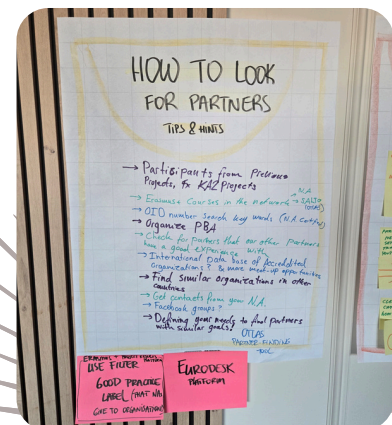 HOW TO LOOK
FOR PARTNERS
TIPS & HINTS
→ Participants from Previous
Projects, fx KA2 Projects
→ Erasmus+ Courses in the network
→ OID number search key words
→ Organize PBA
→ Check for partners that our other partners
have a good experience with
→ International Data base of Accredited
Organizations? & more meet-up opportunities
→ Find similar organizations in other
countries
→ Get contacts from your N.A.
→ Facebook groups?
→ Defining your needs to find partners
with similar goals!
OTLAS
PARTNER-FINDING
TOOL
USE FILTER
GOOD PRACTICE
LABEL (THAT NAs
GIVE TO ORGANISATIONS)
EURODESK
PLATFORM